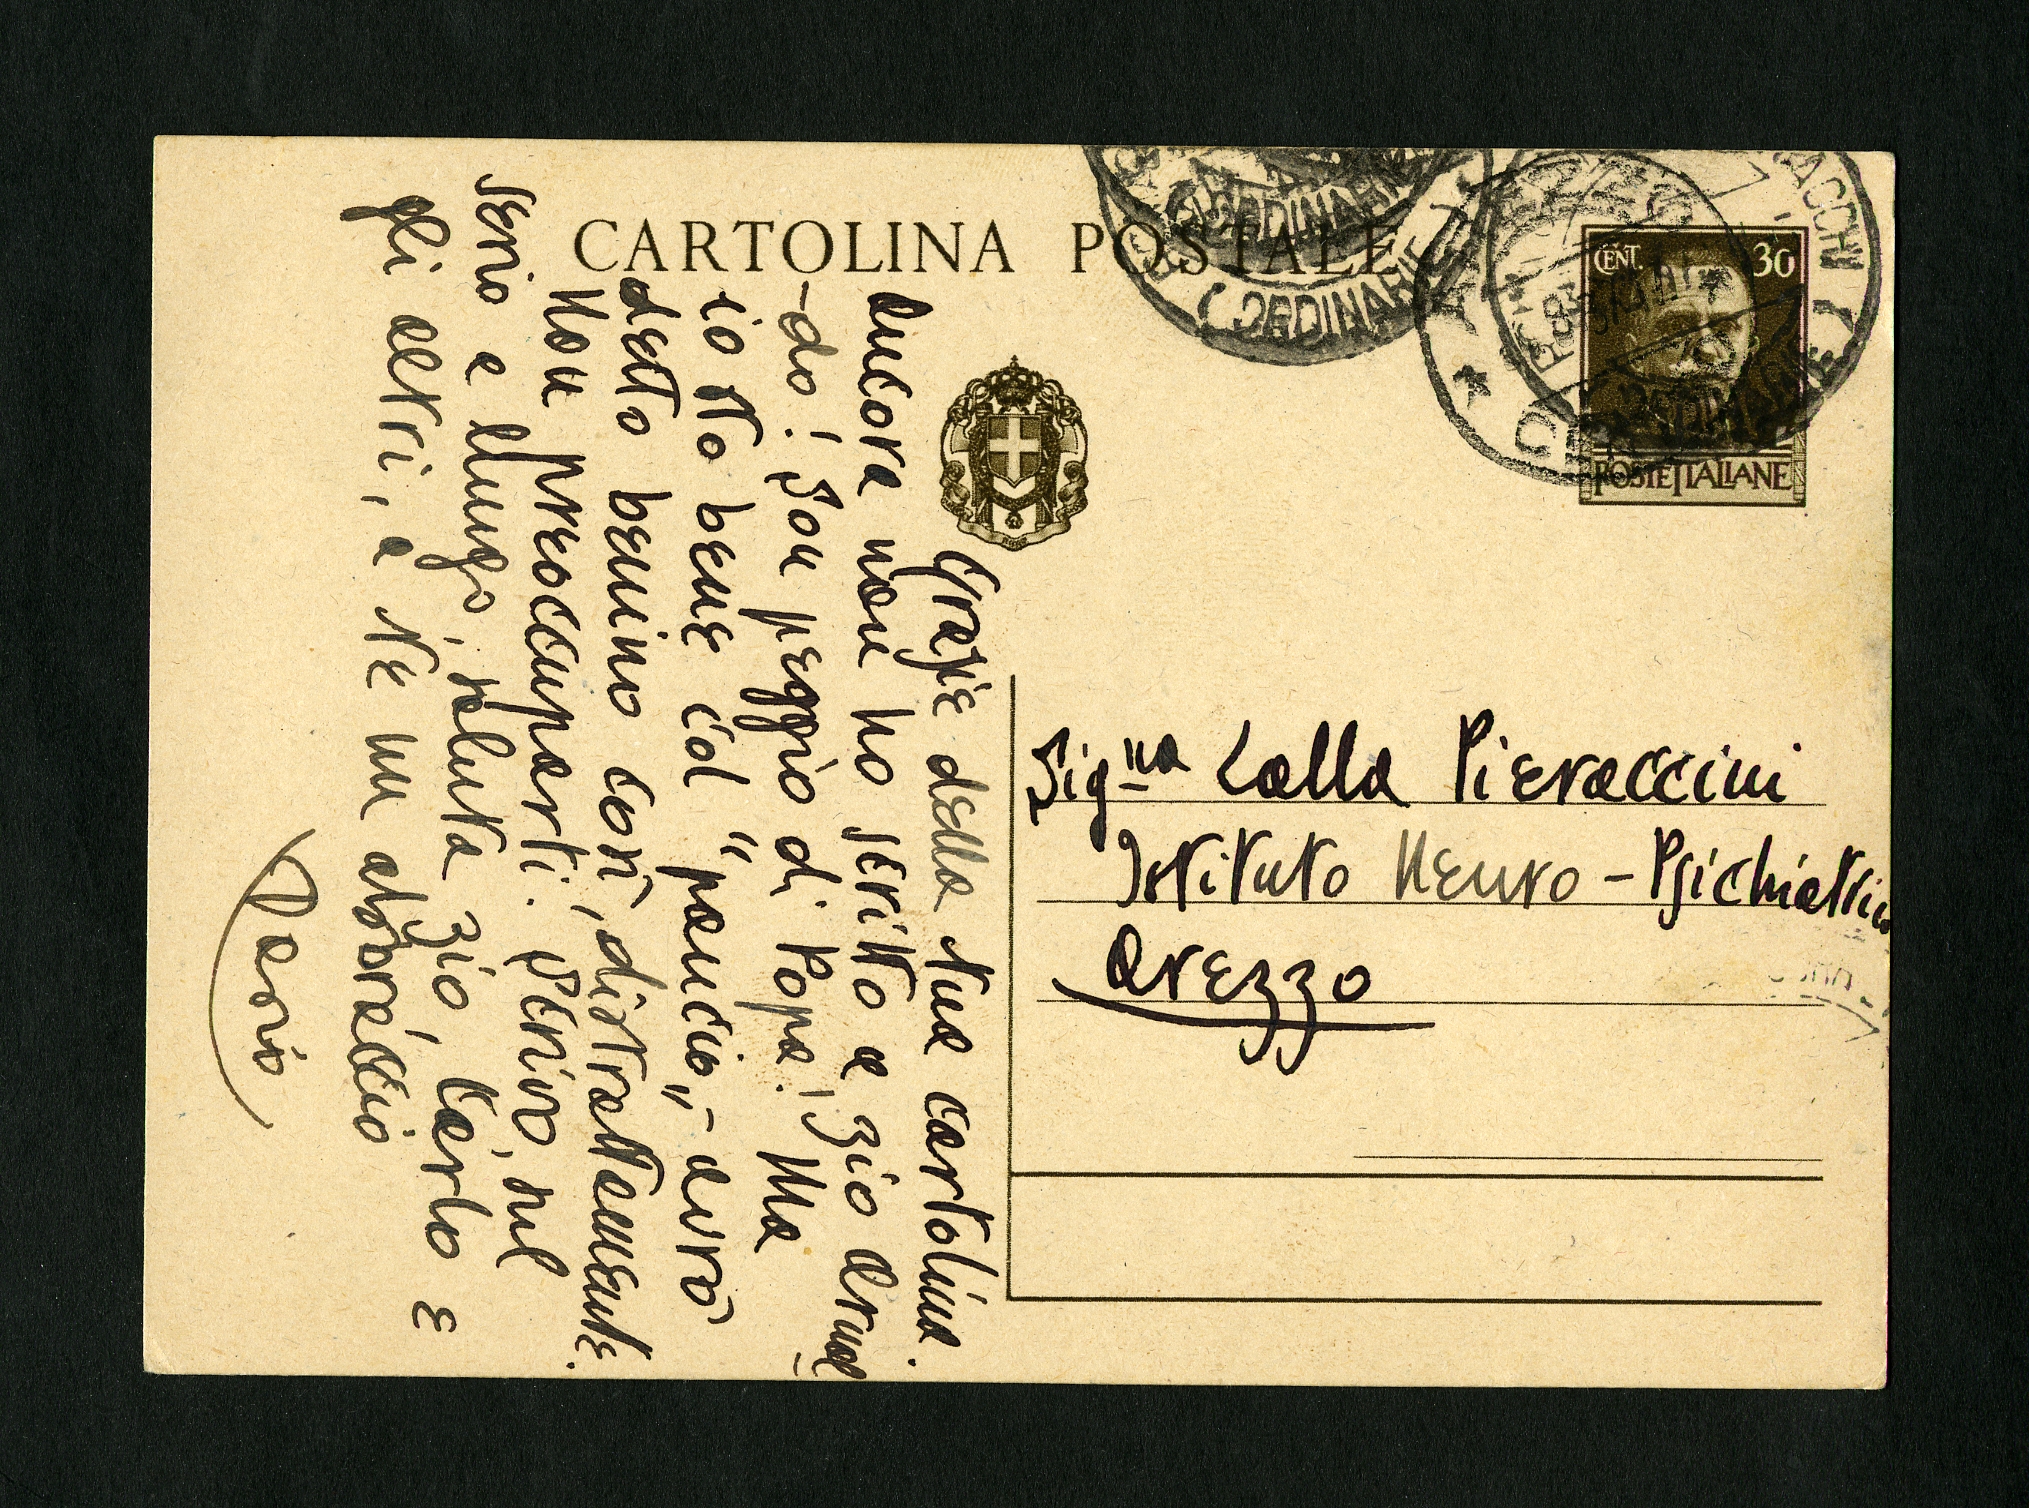 CARTOLINA POSTALE
CENT. 30
POSTE ITALIANE
Sig.na Lalla Pieraccini
Istituto Neuro-Psichiatrico
Arezzo
Grazie della tua cartolina.
Ancora non ho scritto a zio Arnal
-do! Son peggio di Popa! Ma
io sto bene col "pancio",- avrò
detto benino così, distrattamente.
Non preoccuparti. Scrivo, sul
serio e lungo, saluta zio, Carlo e
gli altri, a te un abbraccio
Dario